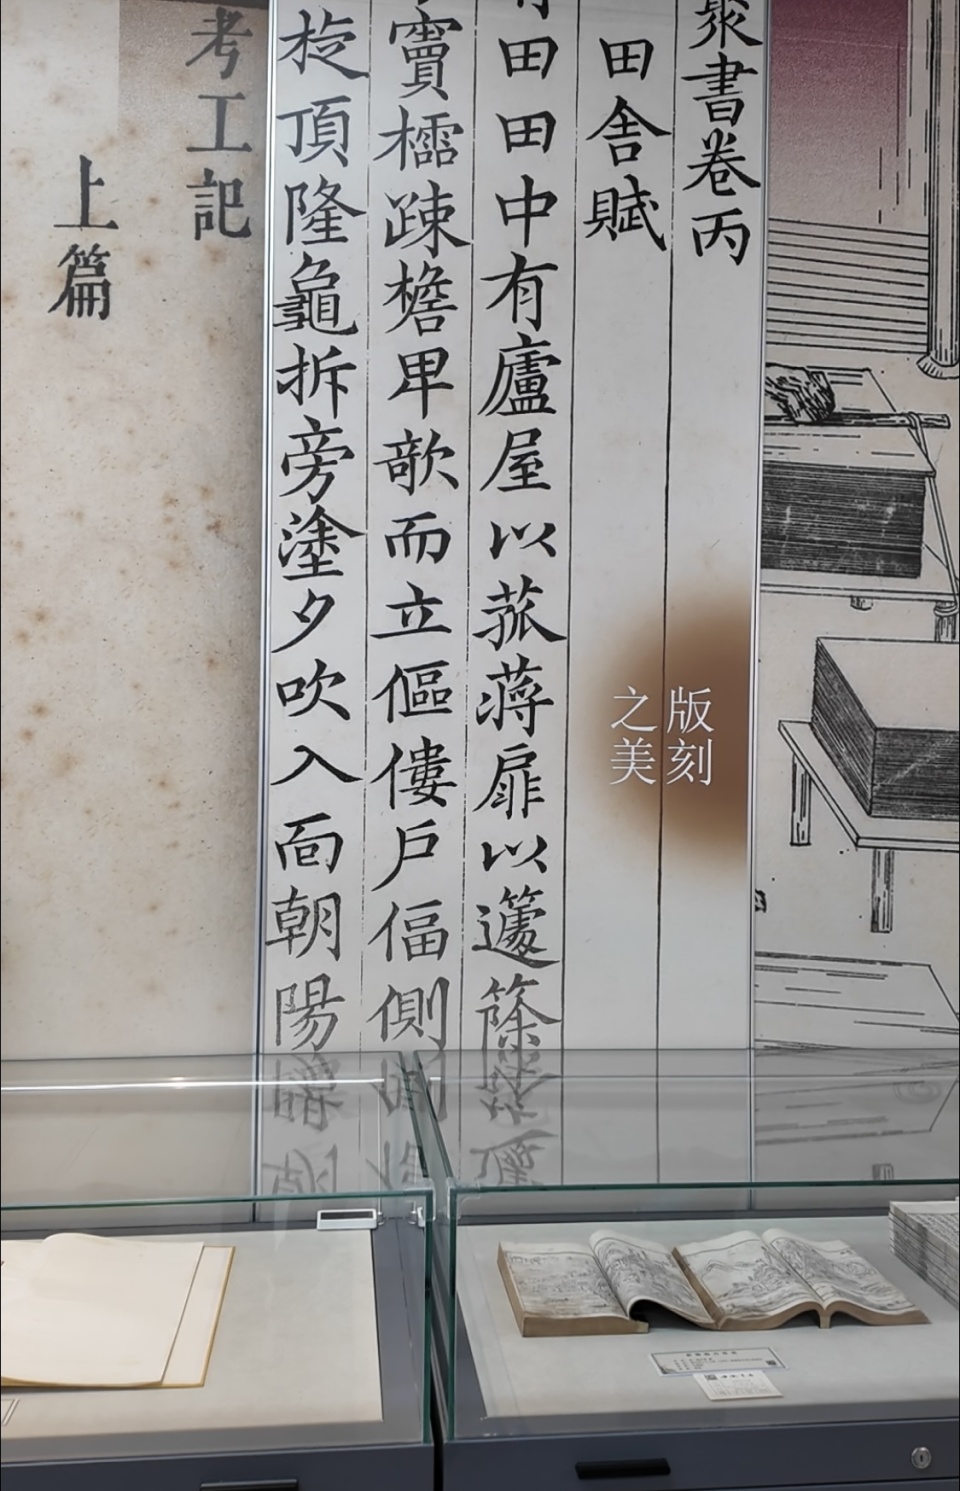 聚書卷丙
田舍賦
有田田中有廬屋以菰蔣扉以籧篨
竇櫺踈檐卑欹而立傴僂戶偪側
頂隆龜拆旁塗夕吹入面朝陽
版刻
之美
考工記
上篇